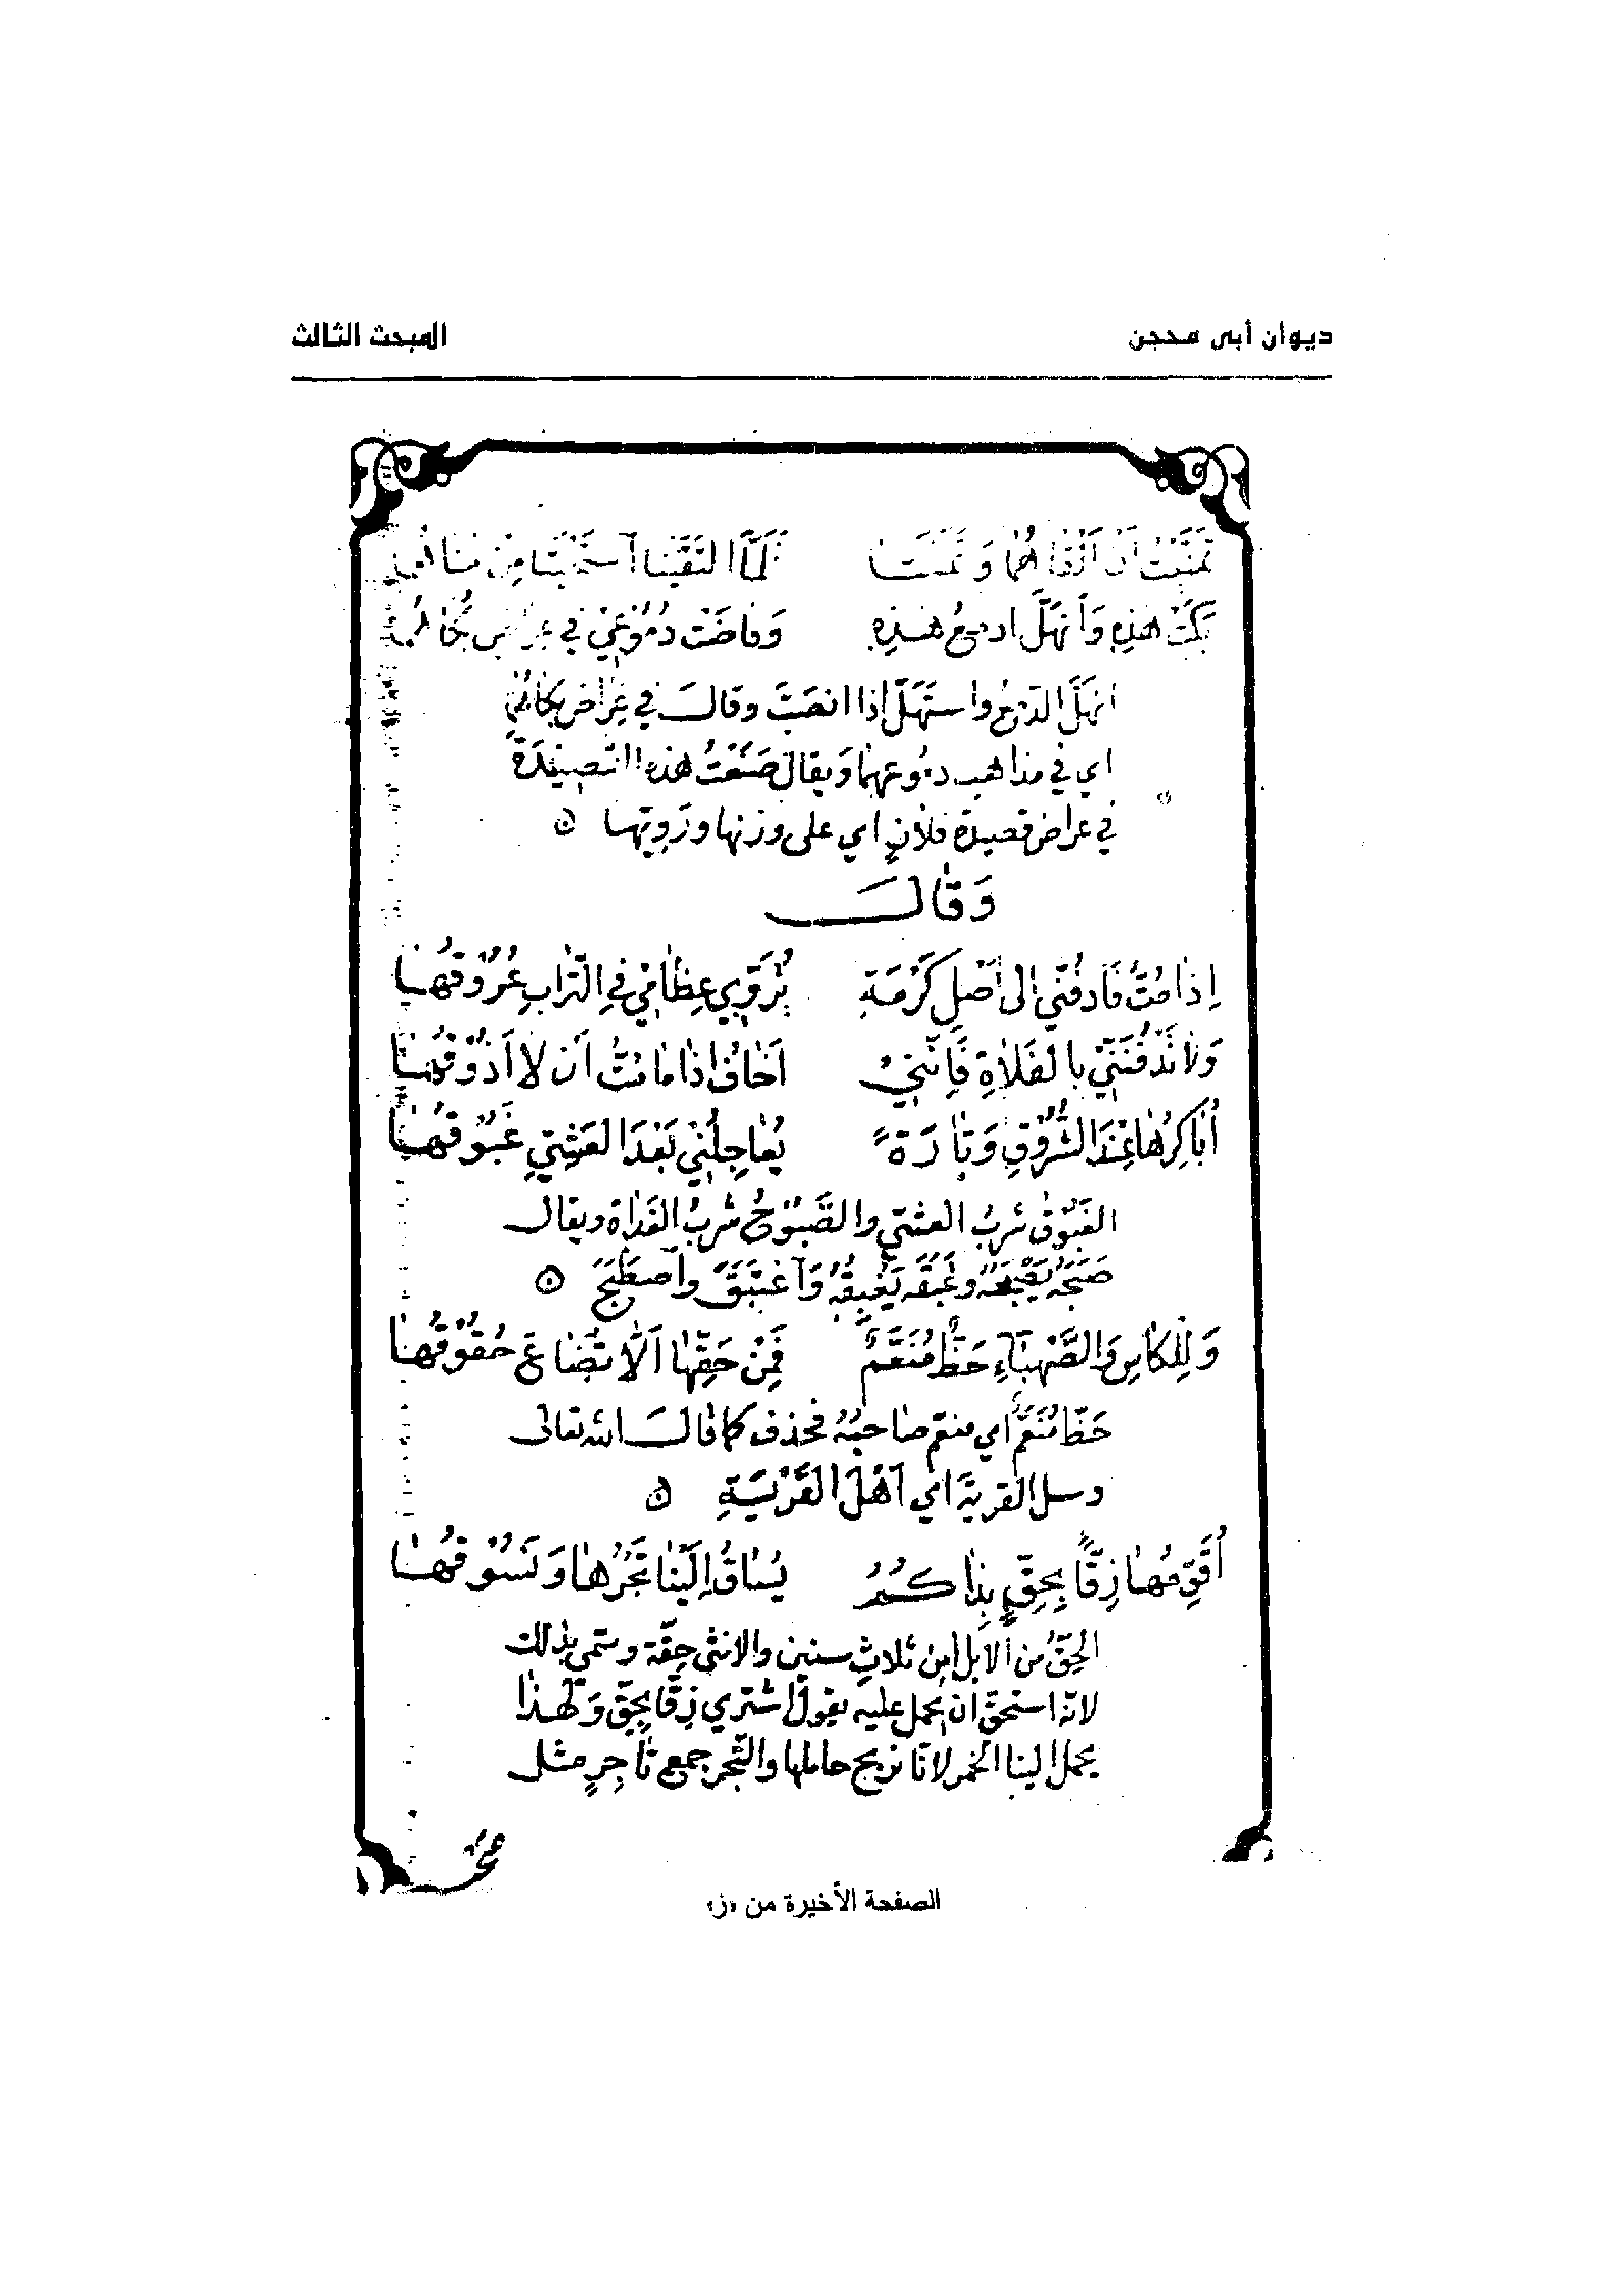 ديوان أبى محجن
المبحث الثالث
تَمَنَّيْتُ اَنْ اَلْقَاهُمَا وَتَمَنَّتَا فَلَمَّا الْتَقَيْنَا اسْتَحْيَيَتَا مِنْ
بَكَتْ هٰذِهِ وَانْهَلَّ ادمعُ هٰذِهِ وَفَاضَتْ دُمُوْعِيْ فِي عِرَاضِ بُكَاهُمَا
انهَلَّ الدّمعُ واستَهَلَّ اذا انصَبَّ وقالَ في عِرَاضِ بكَاهُمَا
اي في مذاهب دموعهما وَيقال صَنَعْتُ هٰذه القصِيْدَةَ
في عراض قصيدة فلانٍ اي على وزنها ورَوِيّها
وَقَالَ
اِذَا مُتُّ فَادفُنّي الى اَصْلِ كَرْمَةٍ تُرَوّي عِظَامِيْ فِي التّرَابِ عُرُوْقُهَا
وَلَا تَدْفُنَنّيْ بالفَلَاةِ فَاِنّنِيْ اَخَافُ اذَا مَا مُتُّ اَنْ لَا اَذُوْقُهَا
اُبَاكِرُهَا عِنْدَ الشُّرُوْقِ وَتَارَةً يُعَاجِلُنِيْ بَعْدَ العَشِيّ غَبُوْقُهَا
الغَبُوْقُ شربُ العشيّ والصَّبُوْحُ شربُ الغَدَاة ويقال
صَبَحَهُ يَصْبَحُهُ وغَبَقَه يَغْبِقُهُ وَاغتَبَقَ واصطَبَحَ
وَلِلْكَاسِ وَالصَّهْبَاءِ حَظٌّ مُنَعَّمٌ فَمِنْ حَقِّهَا اَلَّا تُضَاعَ حُقُوْقُهَا
حَظّ مُنَعَّمٌ اي منعّم صاحبُهُ فحذف كما قالَ الله تعالى
وسل القريةَ اي اَهْلَ القَرْيَةِ
اُقَوِّمُهَا زِقًّا بِحِقٍّ بِذَاكُمُ يُسَاقُ اِلَيْنَا تَجْرُهَا وَنَسُوْقُهَا
الحِقُّ من الابل ابن ثلاثِ سنين والانثى حِقّة وسمّي بذلك
لانّه استحقّ ان يحمل عليه يقول اشتري زِقًّا بحِقّ وَلهذا
يحمل الينا الخمر لانّا نربح حاملها والتّجر جمع تاجِرٍ مثل
الصفحة الأخيرة من «ز»